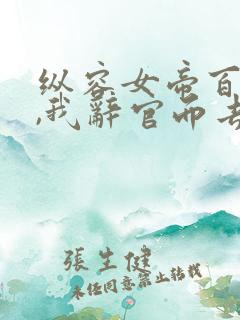 纵容女帝百
,我辭官而去
張生健
未经同意禁止转载